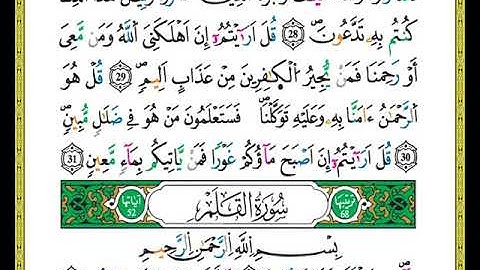 كُنتُم بِهِۦ تَدَّعُونَۖ 28 قُلَ اَرَٰٓيْتُمُۥٓ إِنَ اَهْلَكَنِيَ اَ۬للَّهُ وَمَن مَّعِيَ
أَوْ رَحِمَنَا فَمَنْ يُّجِيرُ اُ۬لْكٰ۪فِرِينَ مِنْ عَذَابٍ اَلِيمٖۖ 29 قُلْ هُوَ
اَ۬لرَّحْمَٰنُ ءَامَنَّا بِهِۦ وَعَلَيْهِ تَوَكَّلْنَاۖ فَسَتَعْلَمُونَ مَنْ هُوَ فِے ضَلَٰلٖ مُّبِينٖۖ
30 قُلَ اَرَٰٓيْتُمُۥٓ إِنَ اَصْبَحَ مَآؤُكُمْ غَوْراٗ فَمَنْ يَّاتِيكُم بِمَآءٖ مَّعِينٖۖ 31
ترتيبها 68 سُورَةُ القَلَمِ آياتها 52
بِسْمِ اِ۬للَّهِ اِ۬لرَّحْمَٰنِ اِ۬لرَّحِيمِ